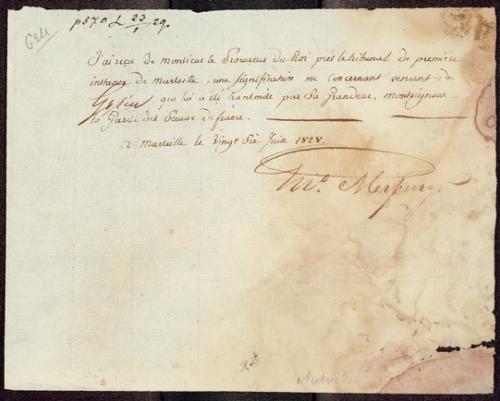 p570 L 23/1 29.
J'ai reçu de monsieur le Procureur du Roi près le tribunal de première
instance de marseille, une signification me concernant venant de
qui lui a été transmise par Sa Grandeur, monseigneur
le Garde des Sceaux de france.
a marseille le Vingt Six Juin 1828.